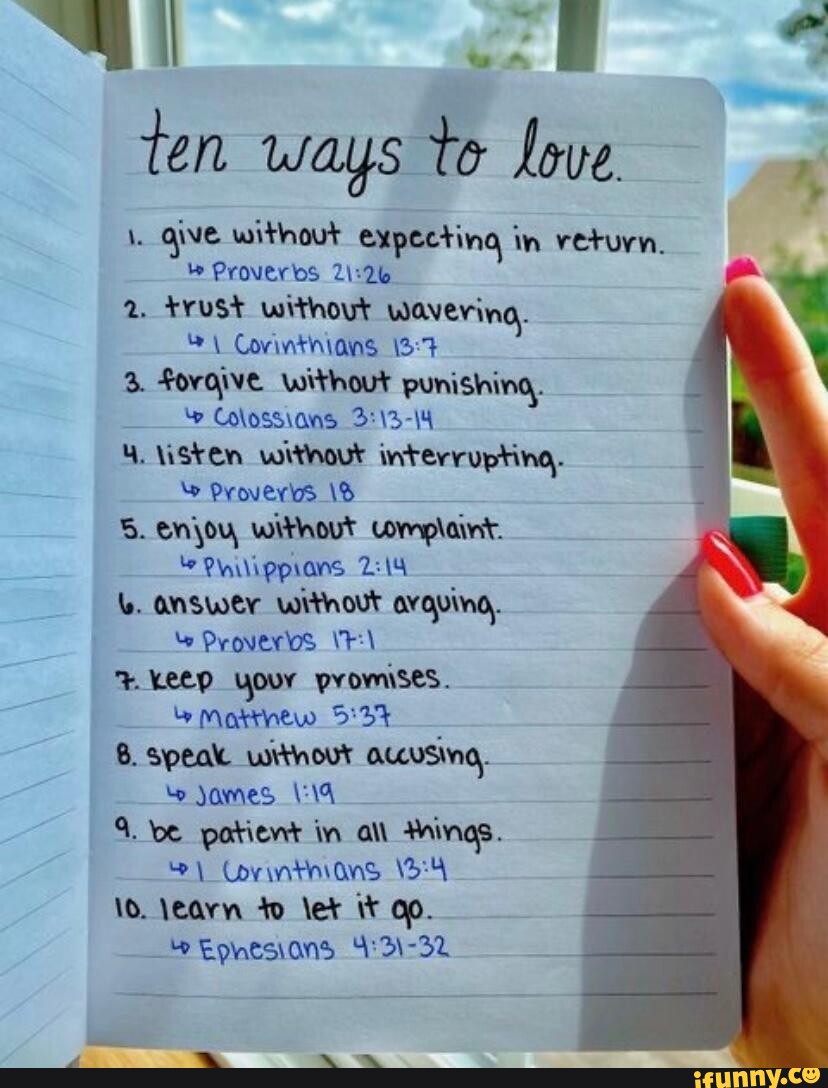 ten ways to love.
1. give without expecting in return.
↳ Proverbs 21:26
2. trust without wavering.
↳ 1 Corinthians 13:7
3. forgive without punishing.
↳ Colossians 3:13-14
4. listen without interrupting.
↳ Proverbs 18
5. enjoy without complaint.
↳ Philippians 2:14
6. answer without arguing.
↳ Proverbs 17:1
7. keep your promises.
↳ Matthew 5:37
8. speak without accusing.
↳ James 1:19
9. be patient in all things.
↳ 1 Corinthians 13:4
10. learn to let it go.
↳ Ephesians 4:31-32
ifunny.co